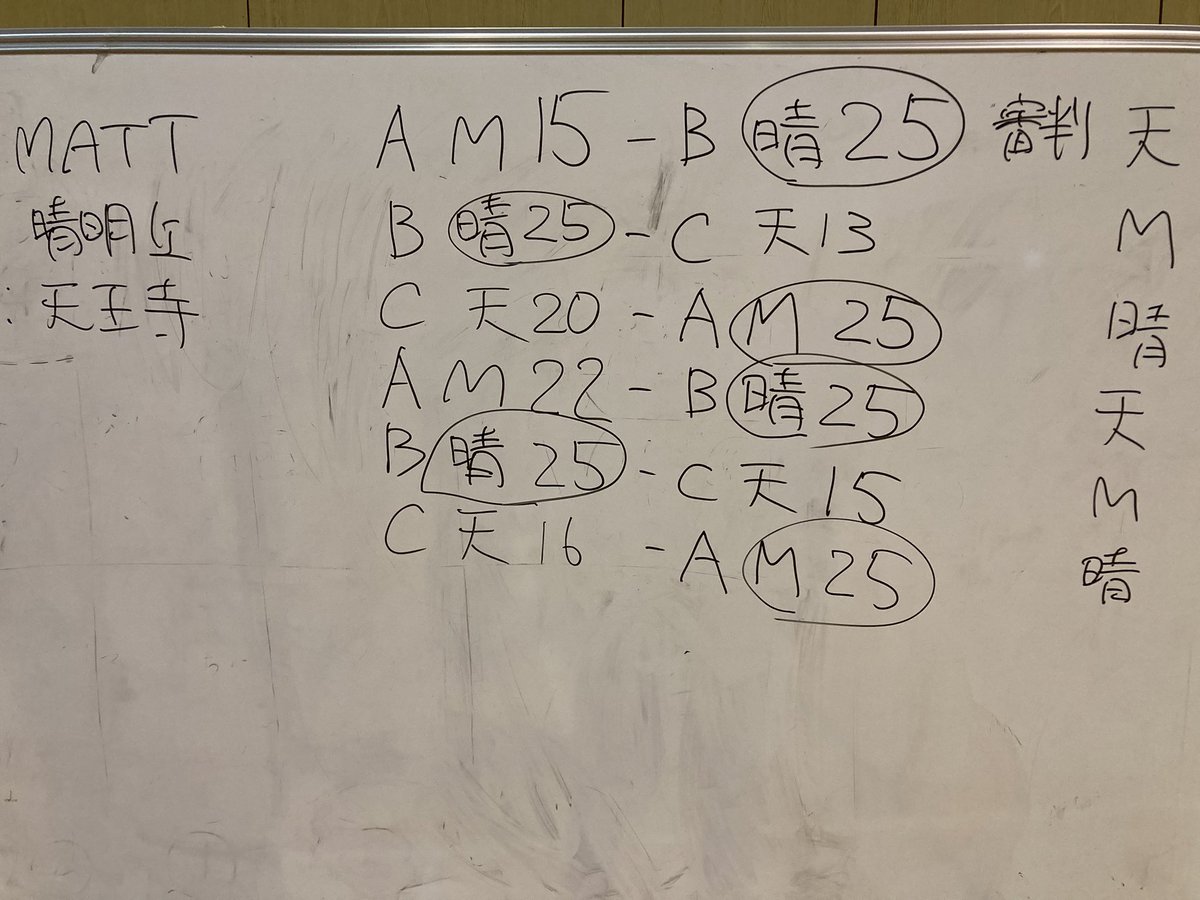 MATT
晴明丘
: 天王寺
A M 15 - B 晴 25 審判 天
B 晴 25 - C 天 13 M
C 天 20 - A M 25 晴
A M 22 - B 晴 25 天
B 晴 25 - C 天 15 M
C 天 16 - A M 25 晴